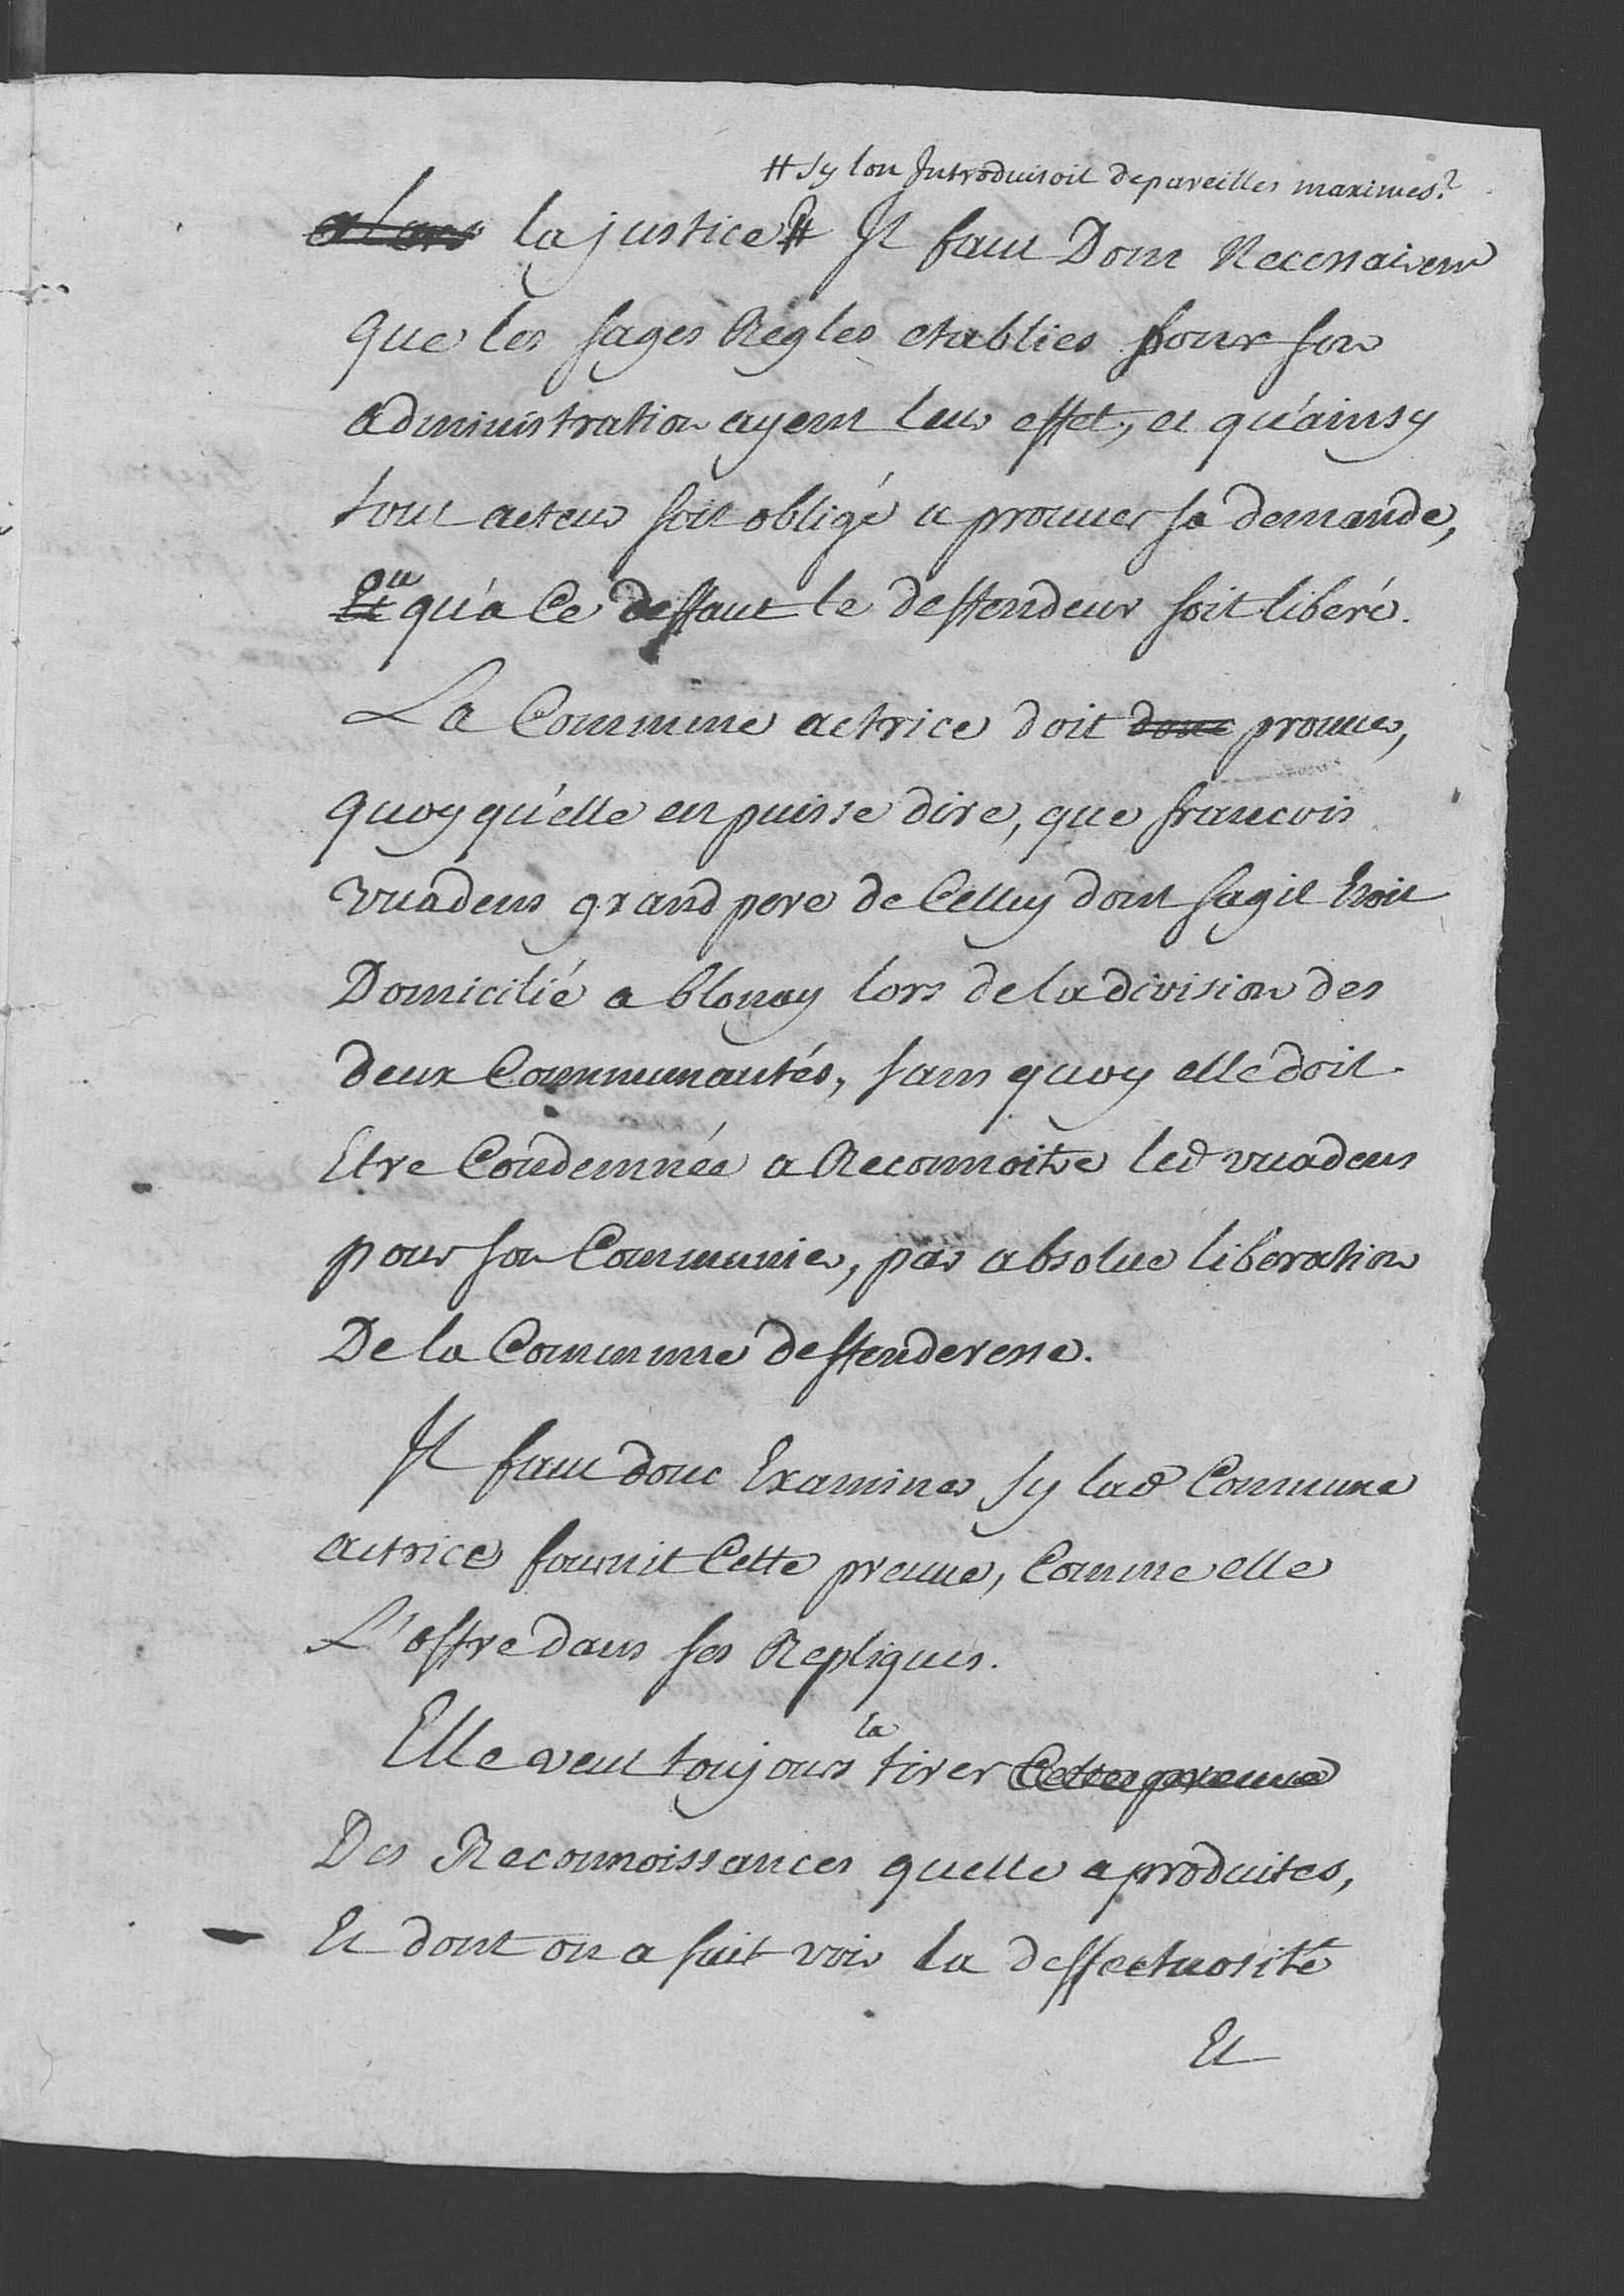 # sy lon Introduisoit depareilles maximes?
alors la justice # Il faut Donc Necessairem
que les sages Regles etablies pour son
administration ayent leur effet, et qu'ainsy
tout acteur soit obligé a prouver sa demande,
Et ou qu'a ce deffaut le deffendeur soit liberé.
La Commune actrice doit donc prouver,
quoy qu'elle en puisse dire, que francois
vuadens grand pere de Celluy dont sagit Etoit
Domicilié a blonay lors de la division des
deux Communautés, sans quoy elle doit
Etre Condemnée a Reconnoitre led vuadens
pour son Communier, par absolue liberation
De la Commune deffenderesse.
Il faut donc Examiner sy lad Commune
actrice fournit Cette preuve, Comme elle
L'offre dans ses Repliques.
la
Elle veut toujours tirer Cette preuve
Des Reconnoissances quelle a produites,
Et dont on a fait voir la deffectuosité
Et